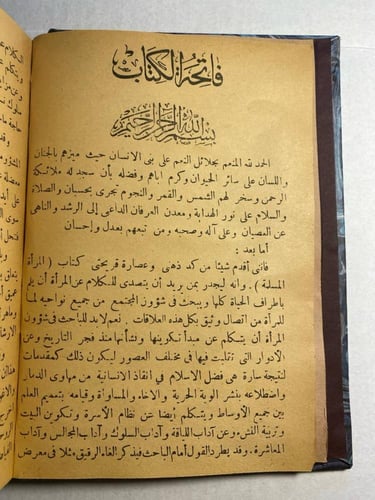 فاتحة الكتاب
بسم الله الرحمن الرحيم
الحمد لله المنعم بجلائل النعم على بنى الانسان حيث ميزهم بالجنان
واللسان على سائر الحيوان وكرم اباهم وفضله بأن سجد له ملائكة
الرحمن وسخر لهم الشمس والقمر والنجوم تجرى بحسبان والصلاة
والسلام على نور الهداية ومعدن العرفان الداعى الى الرشد والناهى
عن العصيان وعلى آله وصحبه ومن تبعهم بعدل وإحسان
أما بعد :
فانى أقدم شيئا من كد ذهنى وعصارة قريحتى كتاب ( المرأة
المسلمة ) . وانه ليجدر بمن يريد أن يتصدى للكلام عن المرأة أن يلم
باطراف الحياة كلها ويبحث فى شؤون المجتمع من جميع نواحيه لما
للمرأة من اتصال وثيق بكل هذه العلاقات . نعم لابد للباحث فى شؤون
المرأة أن يتكلم عن مبدأ تكوينها ونشأتها منذ فجر التاريخ وعن
الأدوار التى تقلبت فيها فى مختلف العصور ليكون ذلك كمقدمات
لنتيجة سارة هى فضل الاسلام فى انقاذ الانسانية من مهاوى الدمار
واضطلاعه بنشر الوية الحرية والاخاء والمساواة وقيامه بتعميم العلم
بين جميع الأوساط ويتكلم أيضا عن نظام الأسرة وتكوين البيت
وتربية النشء وعن آداب اللياقة وآداب السلوك وآداب المجالس وآداب
المعاشرة . وقد يطرد القول أمام الباحث فيذكر الغاء الرقيق مثلا فى معرض